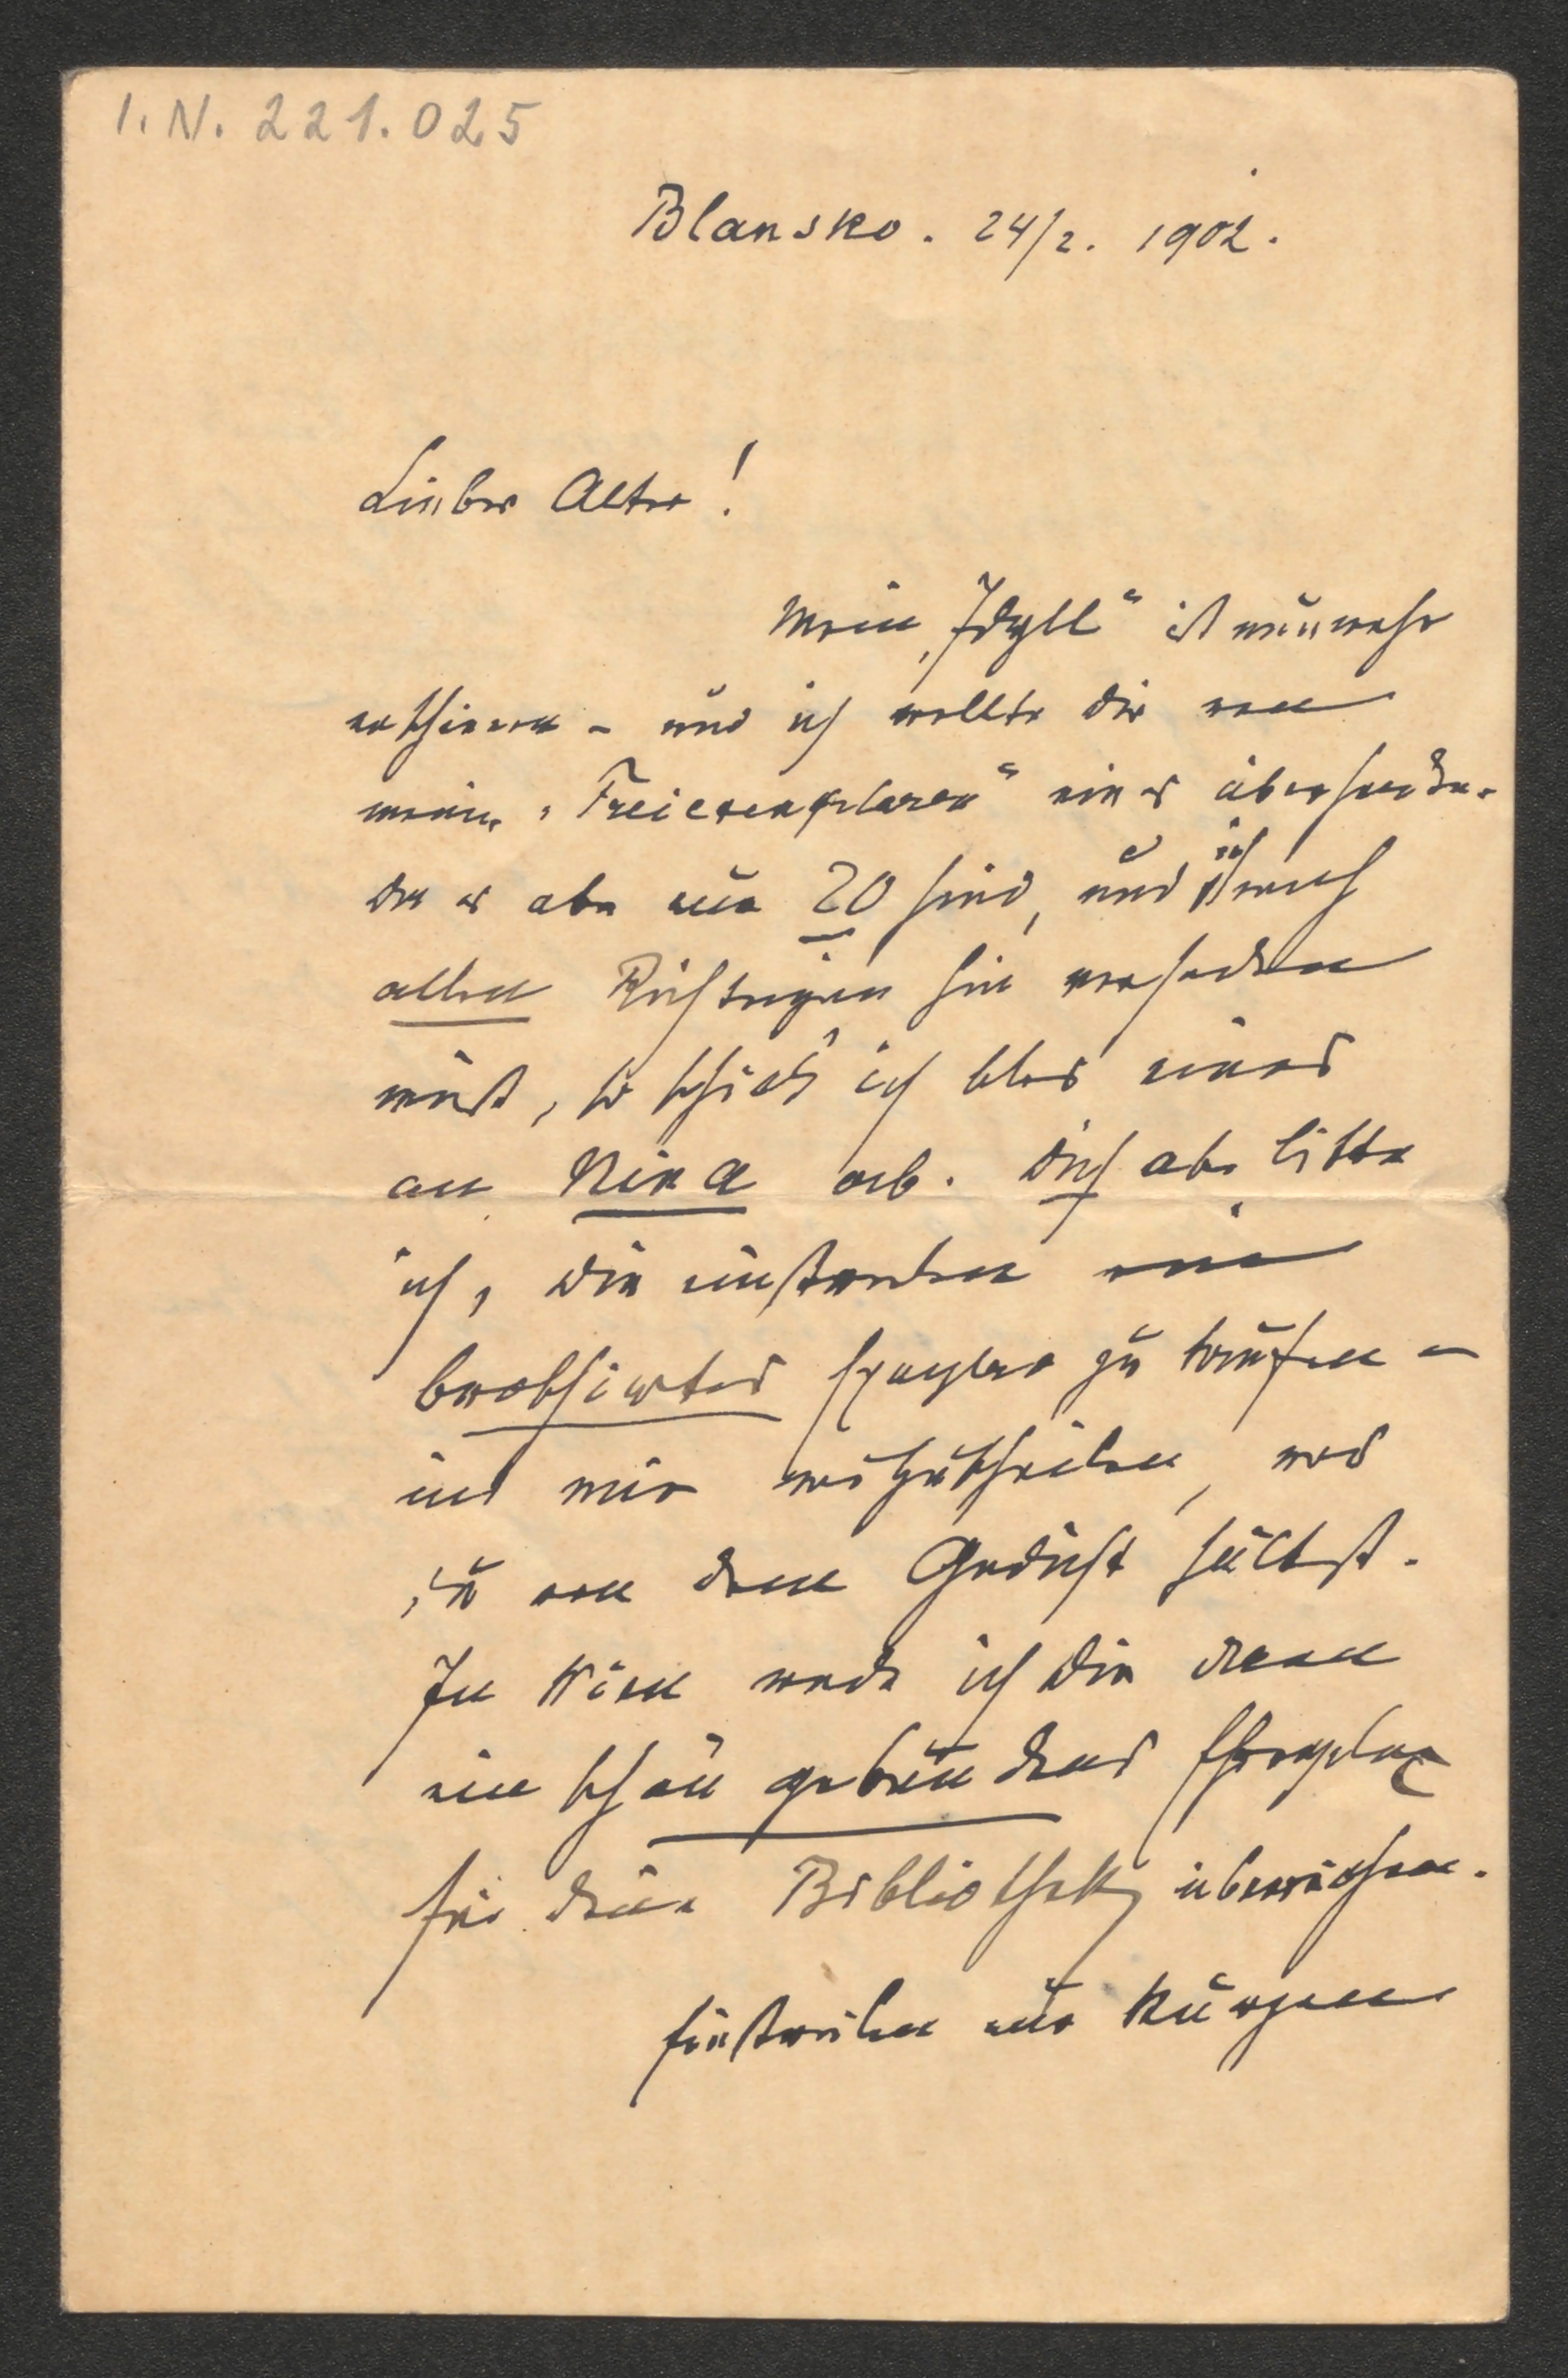 I. N. 221.025
Blansko. 24/2. 1902.
Lieber Alter!
Mein „Idyll“ ist nunmehr
erschienen – und ich wollte Dir von
meinen „Freiexemplaren“ eines übersenden.
Da es aber nur 20 sind, und ich nach
allen Richtungen hin versenden
muß, so schick' ich blos eines
an Nina ab. Dich aber bitte
ich, Dir einstweilen ein
broschirtes Exemplar zu kaufen –
und mir mitzutheilen, was
Du von dem Gedicht hältst.
In Wien werde ich Dir dann
ein schön gebundenes Exemplar
für Deine Bibliothek überreichen.
Einstweilen nur